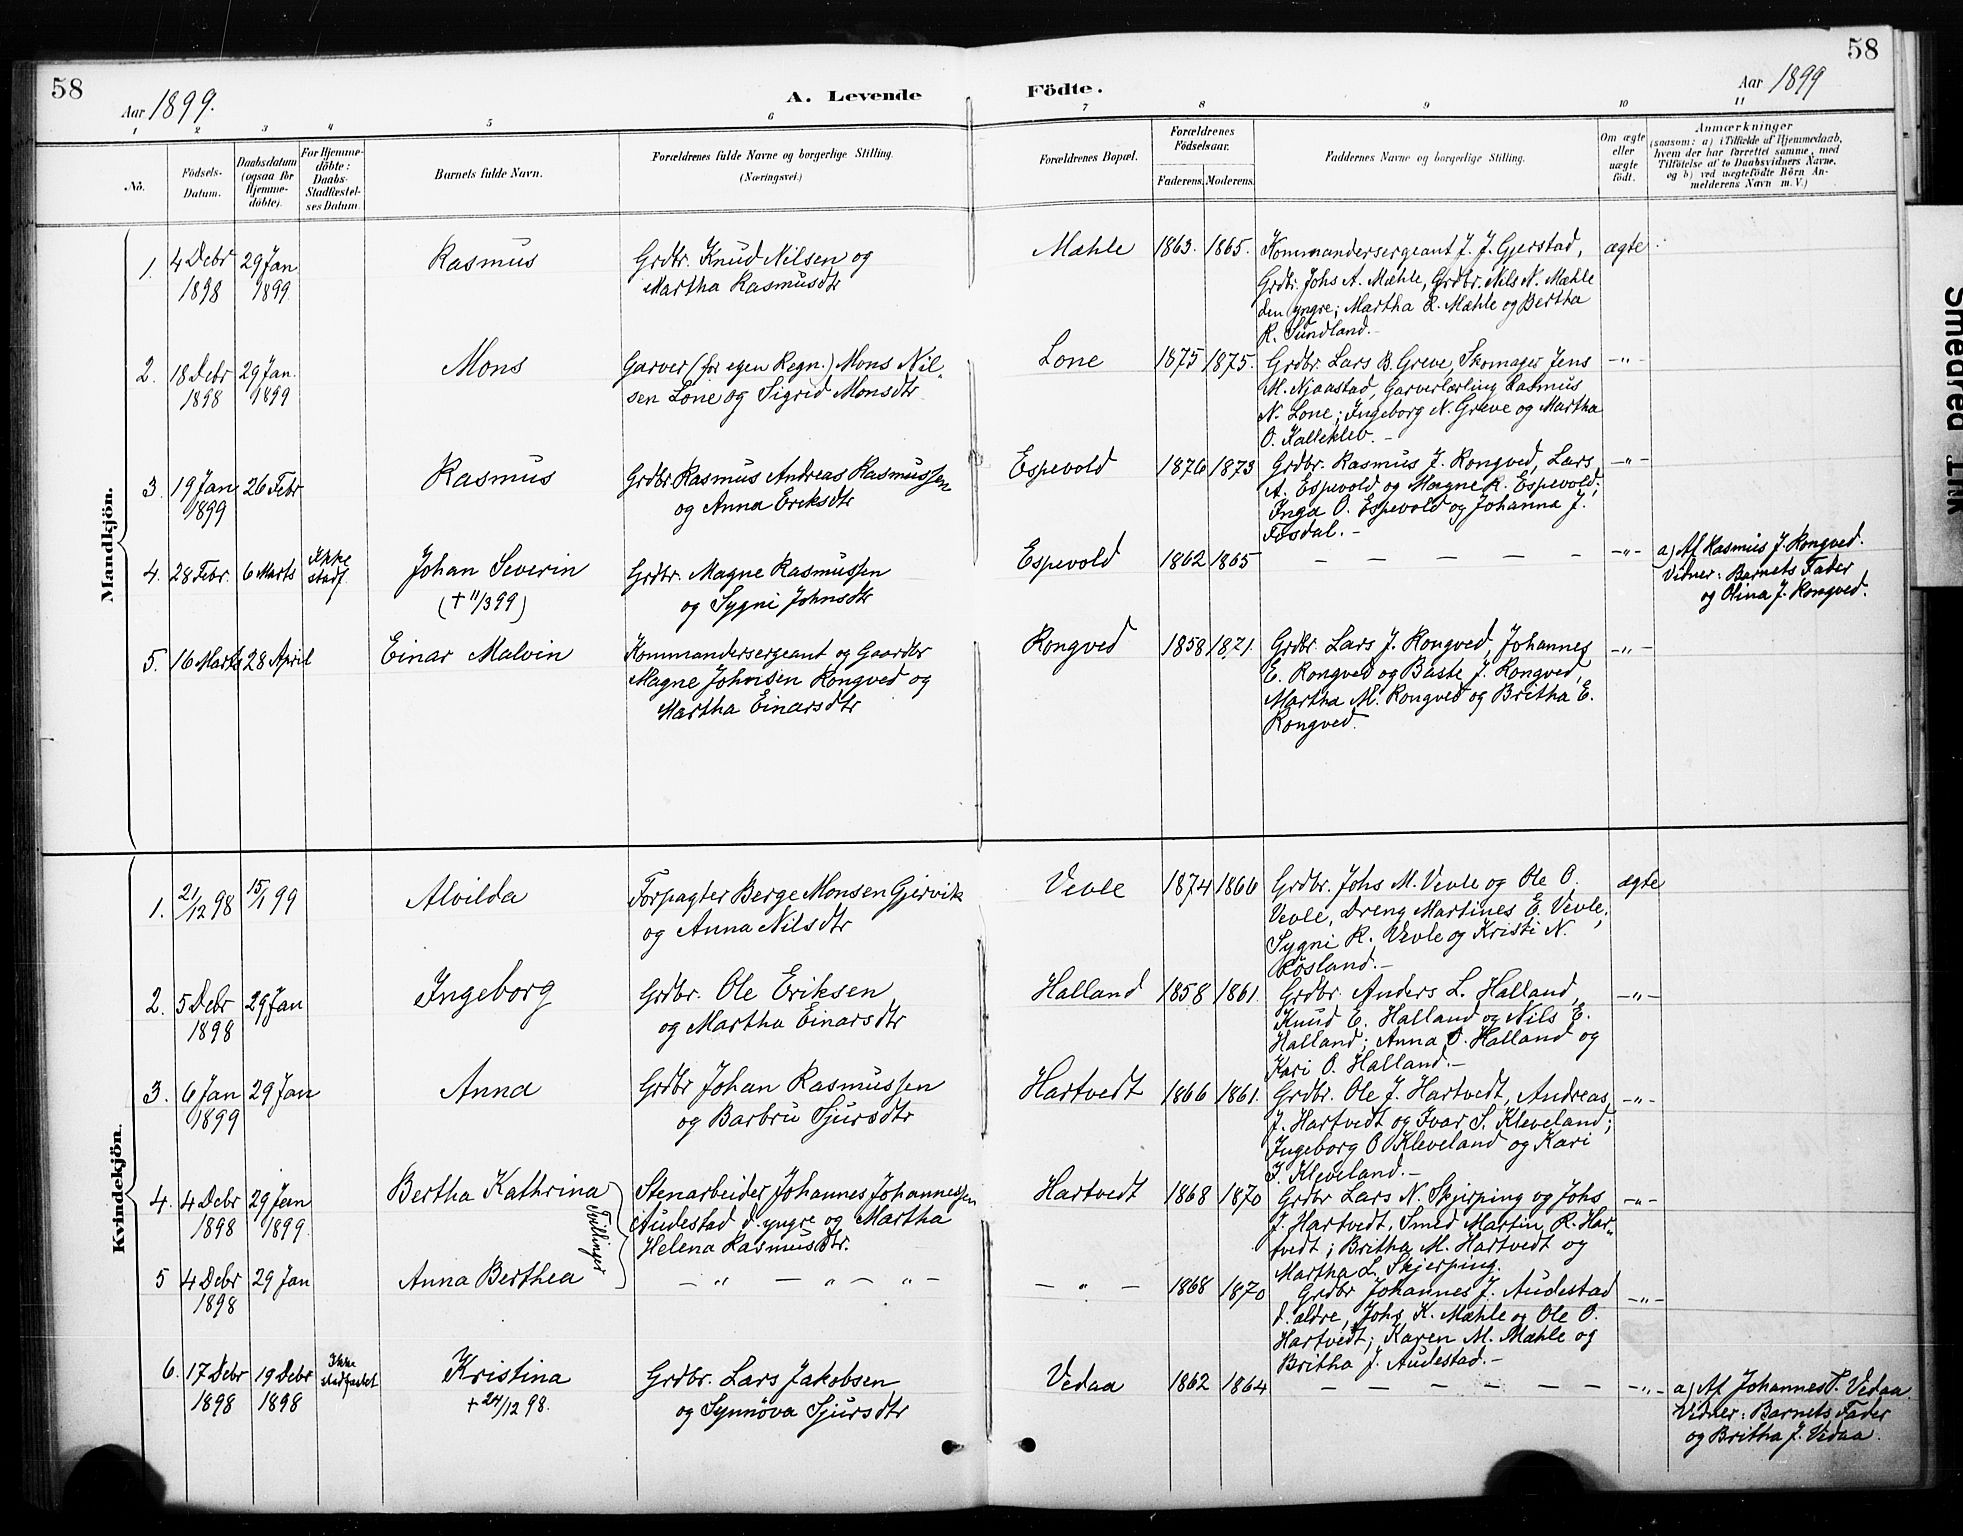 58
Aar 1899.
A. Levende Födte.
Aar 1899
58
1 2 3 4 5 6 7 8 9 10 11
No.
Födsels-
Datum.
Daabsdatum
(ogsaa for
Hjemme-
döbte).
For Hjemme-
döbte:
Daabs-
Stadfæstel-
ses Datum.
Barnets fulde Navn.
Forældrenes fulde Navne og borgerlige Stilling.
(Næringsvei.)
Forældrenes Bopæl.
Forældrenes
Födselsaar.
Faderens. Moderens.
Faddernes Navne og borgerlige Stilling.
Om ægte
eller
uægte
födt.
Anmærkninger
(saasom: a) i Tilfælde af Hjemmedaab,
hvem der har forrettet samme, med
Tilföielse af to Daabsvidners Navne.
og b) ved uægtefödte Börn An-
melderens Navn m. V.)
Mandkjön.
1. 4 Debr 1898
29 Jan 1899
Rasmus
Grdbr. Knud Nilsen og
Martha Rasmusdtr
Mæhle
1863. 1865.
Kommandersergeant J. J. Gjerstad,
Grdbr. Johs A. Mæhle, Grdbr. Nils N. Mæhle
den yngre; Martha R. Mæhle og Bertha
R. Sundland.-
ægte
2. 18 Debr 1898
29 Jan. 1899
Mons
Garver (for egen Regn.) Mons Nil-
sen Lone og Sigrid Monsdtr
Lone
1875 1875.
Grdbr. Lars B. Greve, Skomager Jens
M. Njaastad, Garverlærling Rasmus
N. Lone; Ingeborg N. Greve og Martha
O. Kalleklev. -
-"-
3. 19 Jan 1899
26 Febr
Rasmus
Grdbr Rasmus Andreas Rasmussen
og Anna Eriksdtr
Espevold
1876 1873
Grdbr. Rasmus J. Rongved, Lars
A. Espevold og Magne R. Espevold;
Inga O. Espevold og Johanna J.
Fosdal. -
-"-
4. 28 Febr.
6 Marts
Ikke
stadf.
Johan Severin
(+ 11/3 99)
Grdbr. Magne Rasmussen
og Sygni Johnsdtr
Espevold
1862 1865
- - - - -
-"-
a) Af Rasmus J. Rongved.
Vidner: Barnets Fader
og Olina J. Rongved.
5. 16 Marts
28 April
Einar Malvin
Kommandersergeant og Gaardbr
Magne Johnsen Rongved og
Martha Einarsdtr
Rongved
1858 1871.
Grdbr. Lars J. Rongved, Johannes
E. Rongved og Baste J. Rongved,
Martha M. Rongved og Britha E.
Rongved.
-"-
Kvindekjön.
1. 21/12 98
15/1 99
Alvilda
Forpagter Berge Monsen Gjervik
og Anna Nilsdtr
Vevle
1874 1866
Grdbr. Johs M. Vevle og Ole O.
Vevle, Dreng Martines E. Vevle;
Sygni R. Vevle og Kristi N.
Røsland.-
ægte
2. 5 Debr 1898
29 Jan
Ingeborg
Grdbr. Ole Eriksen
og Martha Einarsdtr
Halland
1858 1861.
Grdbr. Anders L. Halland,
Knud E. Halland og Nils E.
Halland; Anna O. Halland og
Kari O. Halland.-
-"-
3. 6 Jan 1899
29 Jan
Anna
Grdbr Johan Rasmussen
og Barbru Sjursdtr
Hartvedt
1866 1861.
Grdbr. Ole J. Hartvedt, Andreas
J. Hartvedt og Ivar S. Kleveland;
Ingeborg O Kleveland og Kari
I. Kleveland.-
-"-
4. 4 Debr 1898
29 Jan 1899
Bertha Kathrina
Tvillinger
Stenarbeider Johannes Johannessen
Audestad d. yngre og Martha
Helena Rasmusdtr.
Hartvedt
1868 1870
Grdbr Lars N. Skjerping og Johs
J. Hartvedt, Smed Martin R. Har-
tvedt; Britha M. Hartvedt og
Martha L. Skjerping.
-"-
5 4 Debr 1898
29 Jan
Anna Berthea
- " - " - " -
- " -
1868 1870
Grdbr Johannes J. Audestad
d. ældre, Johs K. Mæhle og Ole O.
Hartvedt; Karen M. Mæhle og
Britha J. Audestad.-
-"-
6. 17 Debr 1898
19 Debr 1898
Ikke
stadfæstet
Kristina
+ 24/12 98.
Grdbr. Lars Jakobsen
og Synnöva Sjursdtr
Vedaa
1862 1864
- - - - - -
-"-
a) Af Johannes T. Vedaa
Vidner: Barnets Fader
og Britha J. Vedaa.